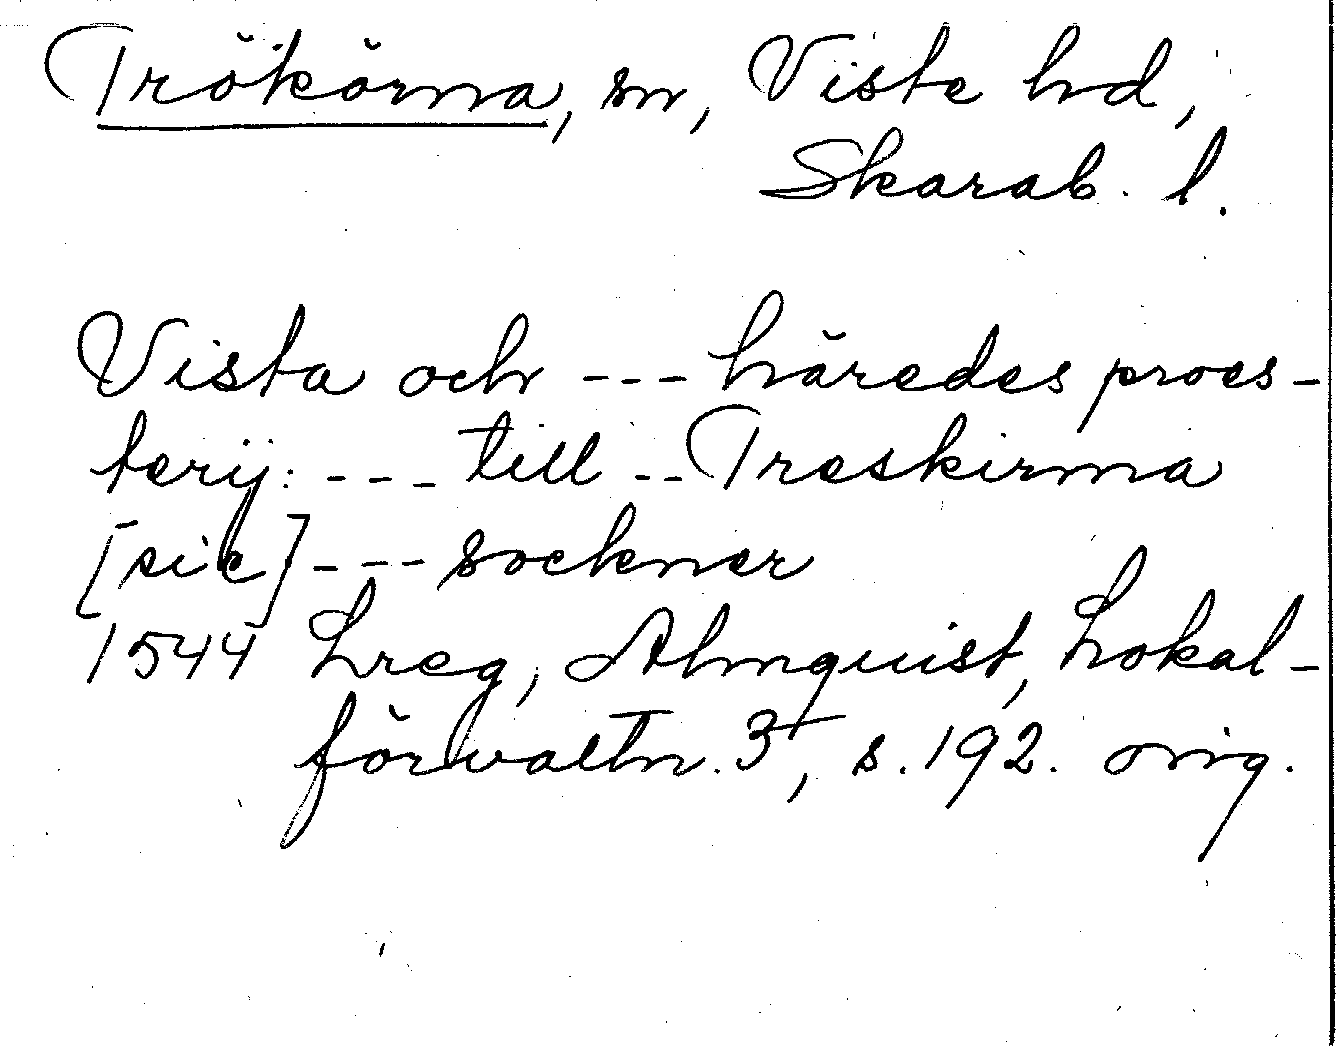 Trökörna, sn, Viste hd,
Skarab. l.
Vista och --- häredes proes-
terij: --- till -- Treskirma
[sic] --- socknar
1544 Lreg, Almquist, Lokal-
förvaltn. 3, s. 192. orig.